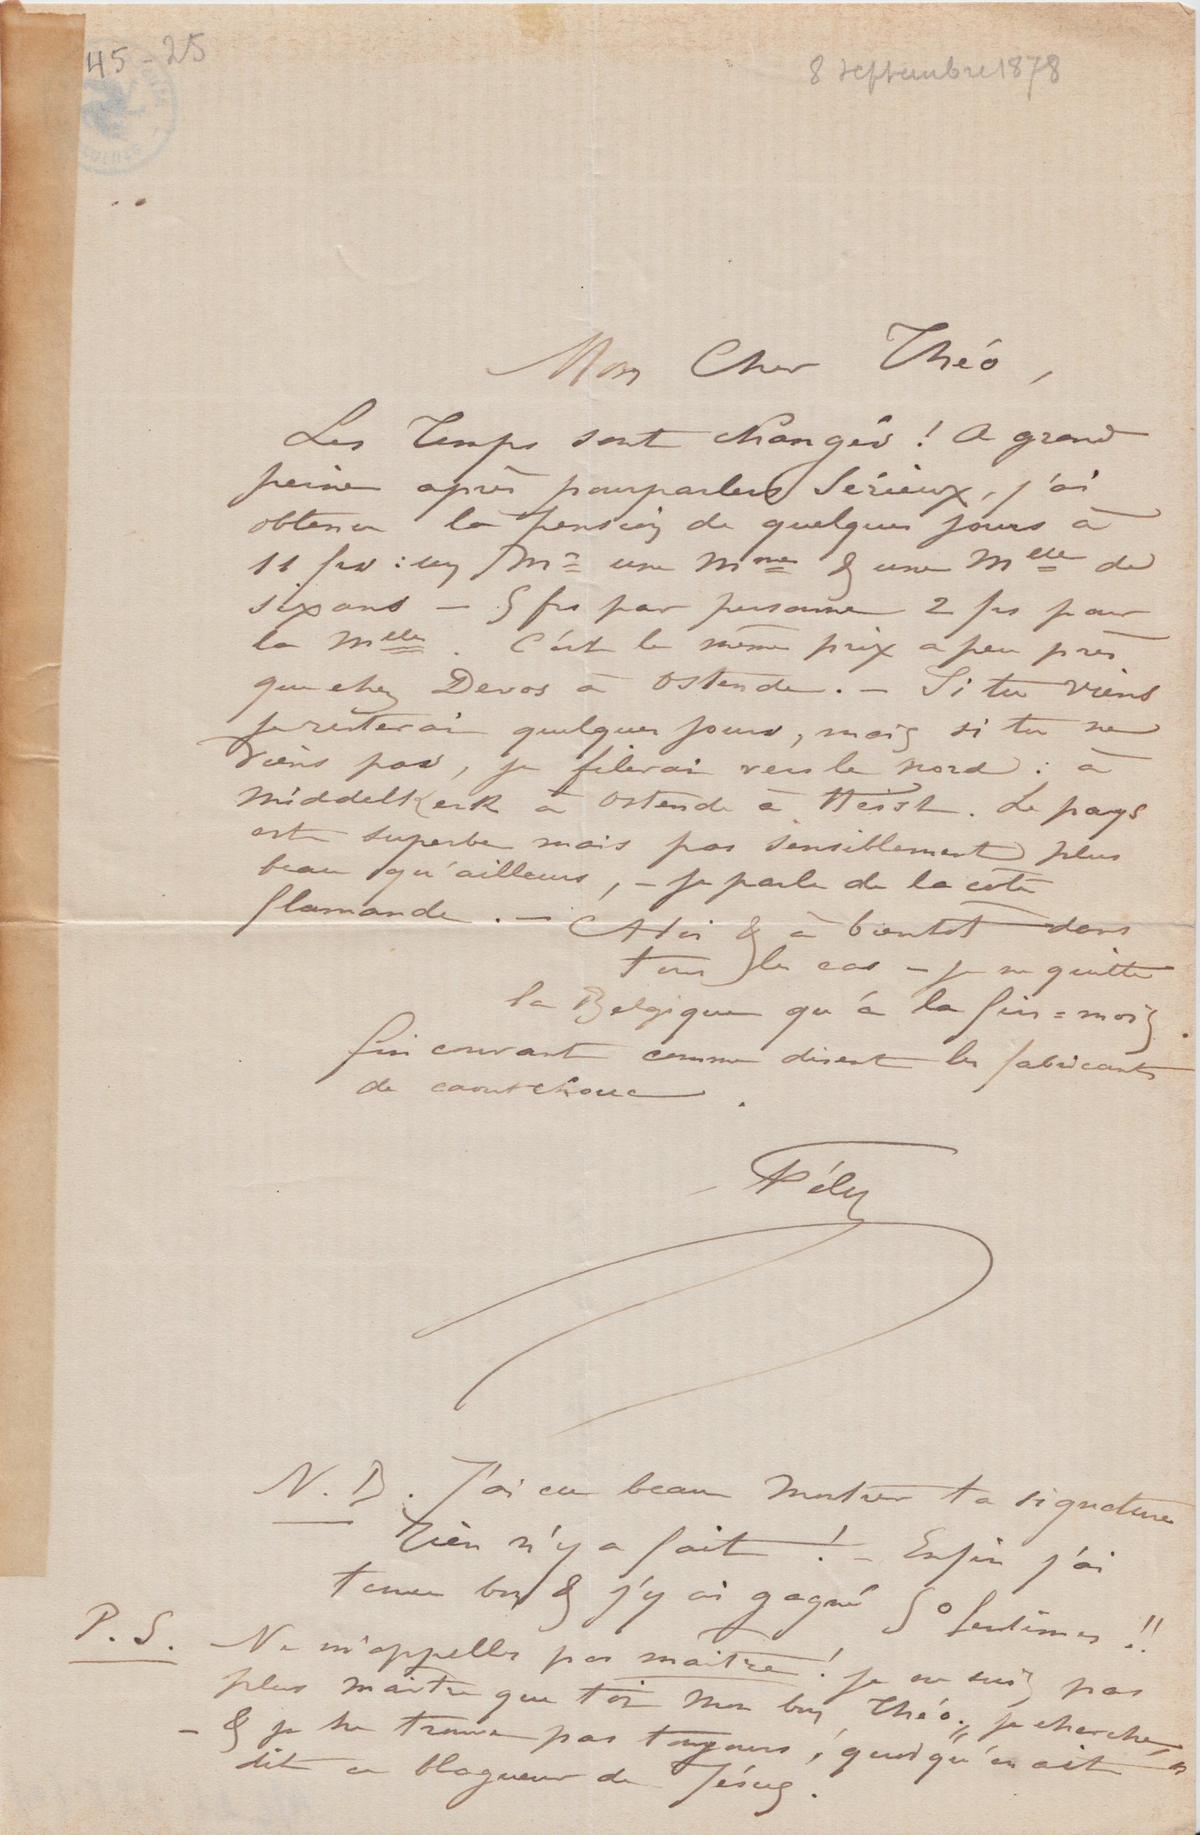 45 - 25
8 septembre 1878
Mon Cher Théo,
Les Temps sont changés ! A grand
peine après pourparlers Sérieux, j'ai
obtenu la pension de quelques jours à
11 frs : un Mr une Mme & une Melle de
six ans — 5 frs par personne 2 frs pour
la Melle. C'est le même prix a peu près
que chez Devos à Ostende. — Si tu viens
je resterai quelques jours, mais si tu ne
viens pas, je filerai vers le nord : à
Middelkerk à Ostende à Heist. Le pays
est superbe mais pas sensiblement plus
beau qu'ailleurs, — je parle de la côte
flamande. — A toi & à bientôt dans
tous les cas — je ne quitte
la Belgique qu'à la fin = mois.
fin courant comme disent les fabricants
de caoutchouc.
Fély
N. B. J'ai eu beau montrer ta signature
rien n'y a fait ! — Enfin j'ai
tenu bon & j'y ai gagné 50 Centimes !!
P. S. Ne m'appelles pas maître ! je ne suis pas
plus maître que toi mon bon Théo, „ je cherche, „
— & je ne trouve pas toujours, quoiqu'en ait
dit ce blagueur de Jésus.